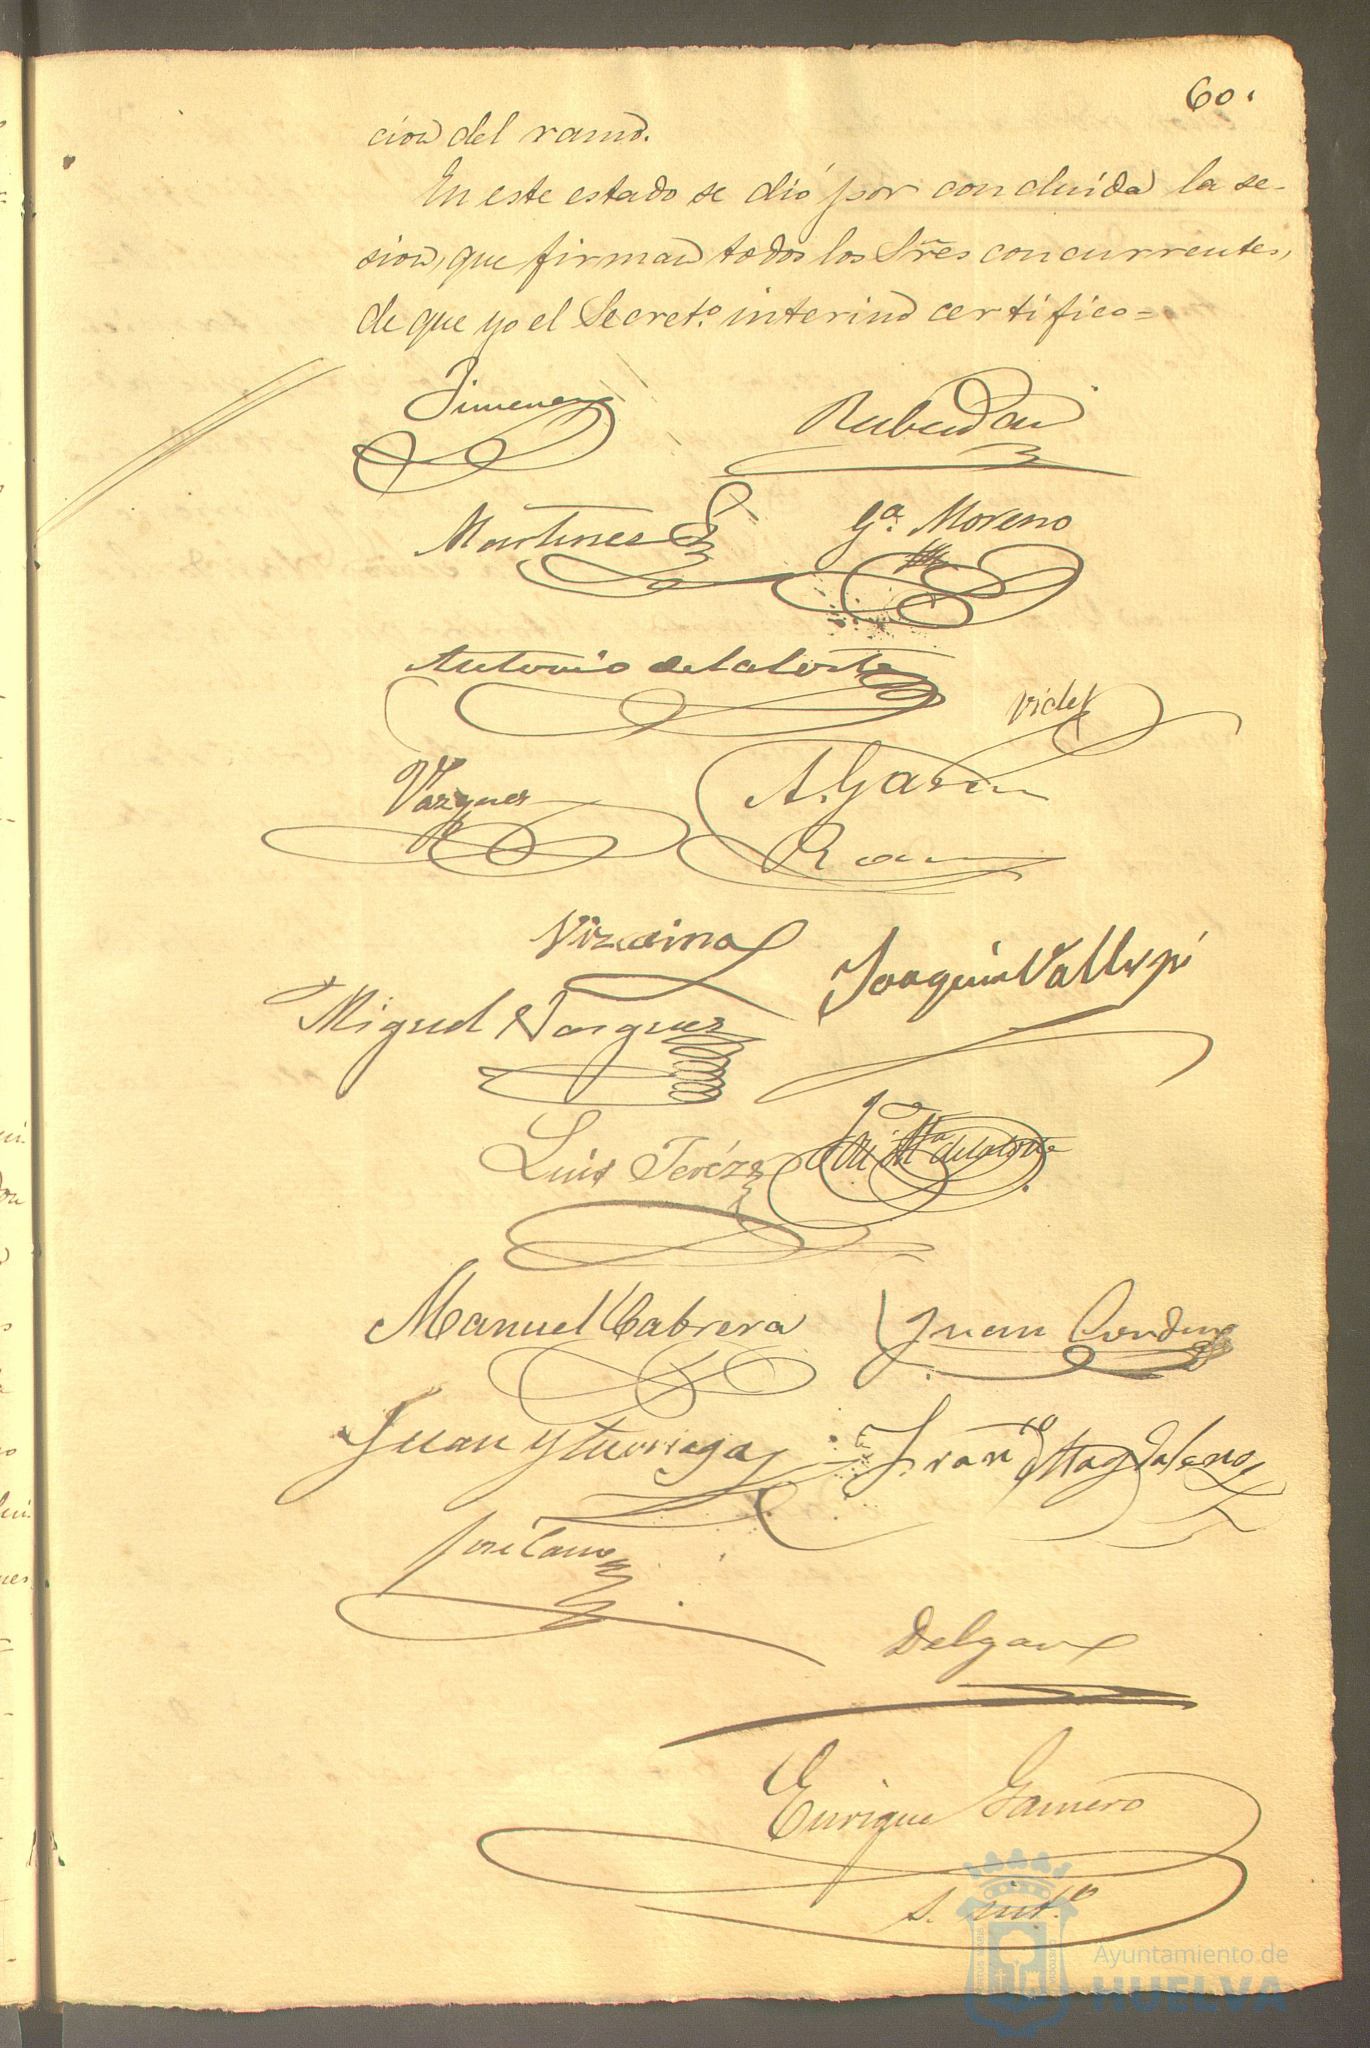 60.
cion del ramo.
En este estado se dió por concluida la se-
sion, que firman todos los Sres concurrentes,
de que yo el Secreto. interino certifico=
Jimenez
Rubendau
Martinez
Ga. Moreno
Antonio de la Corte
Videl
Vazquez
A. Garcia
Vizcaino
Joaquin Vallespi
Miguel Vazquez
Luis Terézz
José Ma. de la Corte
Manuel Cabrera
Juan
Juan Yturriaga
Franco Magdaleno
José Cano
Enrique Gamero
s. into.
Ayuntamiento de
HUELVA